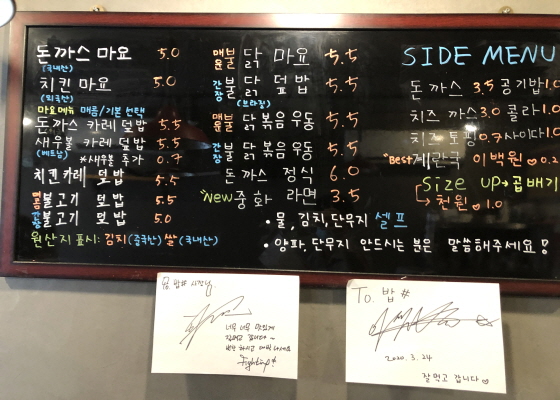 돈까스 마요 5.0
(국내산)
치킨 마요 5.0
(외국산)
마요메뉴 매콤/기본 선택
돈까스 카레 덮밥 5.5
새우볼 카레 덮밥 5.5
(베트남) *새우볼 추가 0.7
치킨카레 덮밥 5.5
매콤 불고기 덮밥 5.5
간장 불고기 덮밥 5.0
원산지 표시: 김치(중국산) 쌀(국내산)
매운 불 닭 마요 5.5
간장 불 닭 덮밥 5.5
(브라질)
매운 불 닭 볶음 우동 5.5
간장 불 닭 볶음 우동 5.5
돈까스 정식 6.0
"New 중화 라면 3.5
• 물, 김치, 단무지 셀프
• 양파, 단무지 안드시는 분은 말씀해주세요!
SIDE MENU
돈까스 3.5 공기밥 1.0
치즈까스 3.0 콜라 1.0
치즈토핑 0.7 사이다 1.0
"Best 계란국 이백원 0.2
Size up→곱배기
↳천원 1.0
몸 밥# 사장님
너무 너무 맛있게
Fighting!
To. 밥#
2020. 3. 24
잘먹고 갑니다